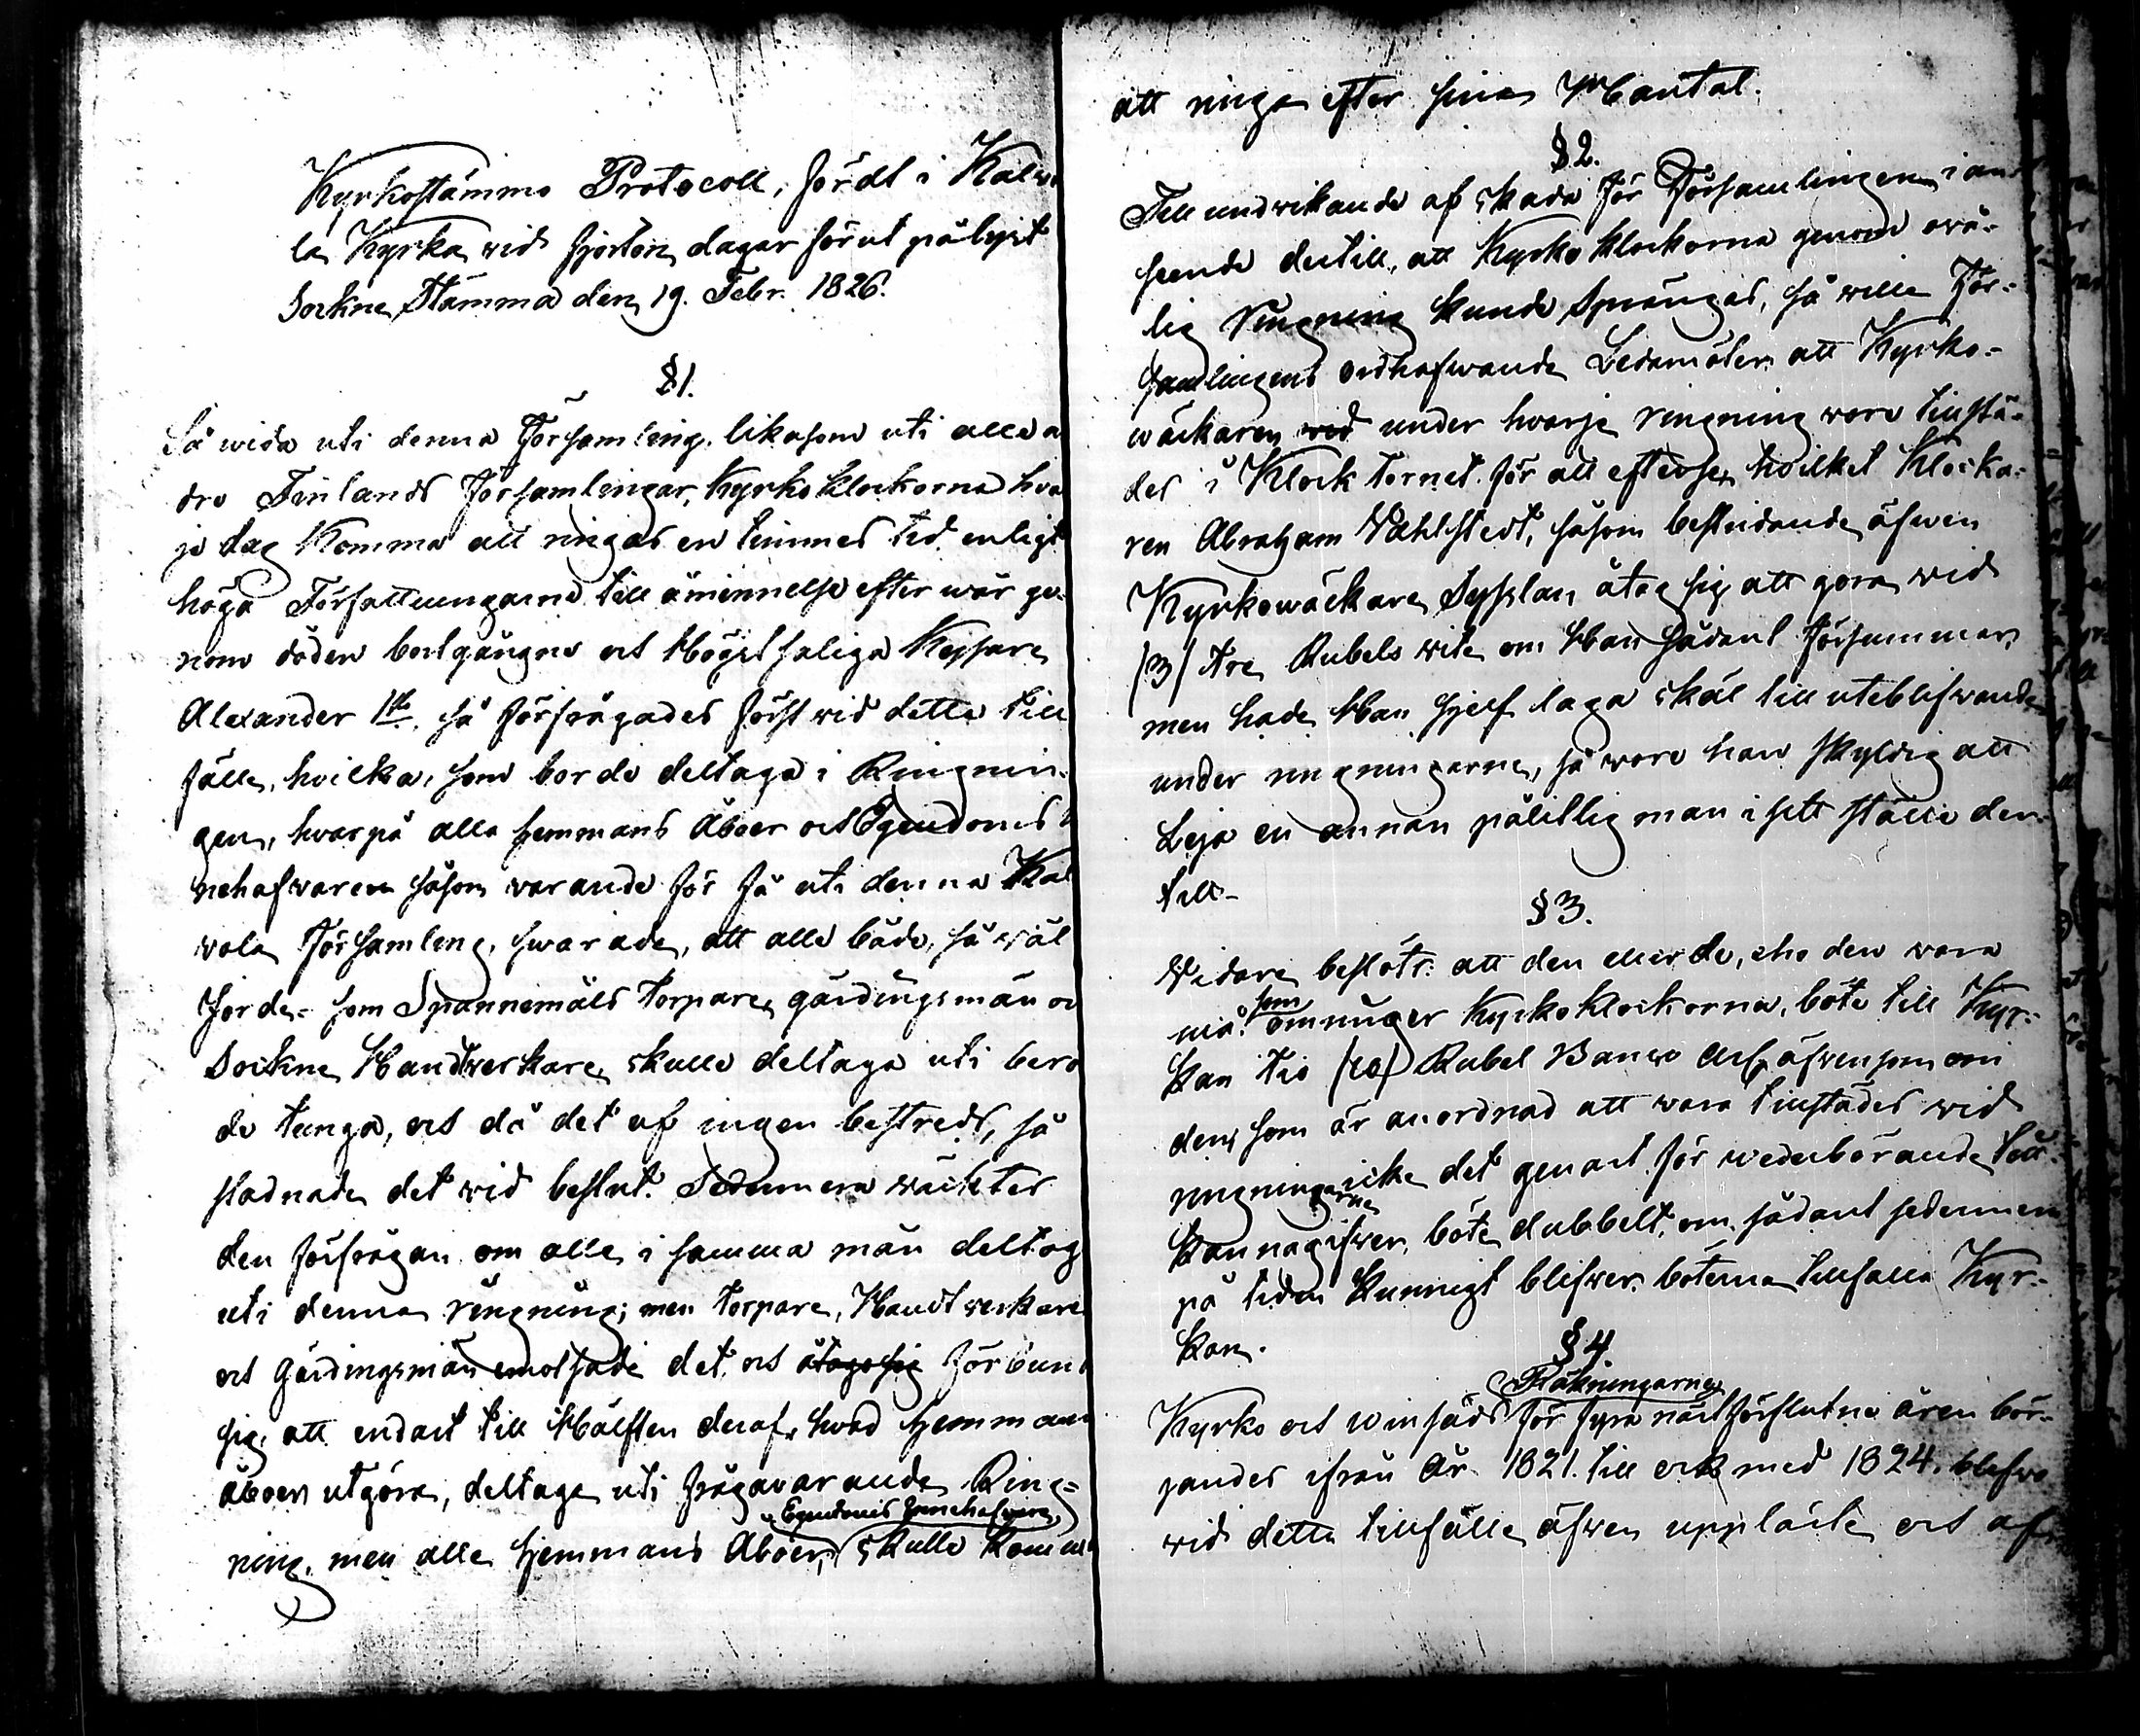 Kyrkostämmo Protocoll, fördt i Kalwo
la Kyrka wid fjorton dagar förut pålyst
Sockne Stämma den 19. Febr. 1826.
§ 1.
Så wida uti denna Församling, likasom uti alla a
dra Finlands Församlingar, Kyrko klockorna hva
je dag komma att ringas en timmes tid enligt
höga Författningarne till åminnelse efter wår ge-
nom döden bortgångne och Högstsaliga Kejsare
Alexander 1ste, så förfrågades först wid detta till
fälle, hvilka, som borde deltaga i Ringnin-
gen, hvarpå alla hemmans Åboer och Egendoms
nehafwaren såsom warande för få uti denna Kal
wola Församling, swarade, att alla både, så wäl
Jorde- som Spannemåls torpare, gärdingsmän oc
Sockne Handtwerkare skulle deltaga uti berö
de tunga, och då det af ingen bestreds, så
stadnade det wid beslut. Sedermera wäcktes
den förfrågan om alla i samma mån deltog
uti denna ringning; men torpare, Handtwerkare
och Gärdingsmän emotsade det, och åtogo sig förbund
sig, att endast till Hälften deraf, hvad hemmans
åboen utgöra, deltaga uti frågavarande Ring-
ning, men alla hemmans Åboer, Egendoms Innehafware, skulle komma
att ringa efter sina Mantal.
§ 2.
Till undwikande af skada för Församlingen i an-
seende dertill, att Kyrko klockorna genom owå-
lig Ringning kunde Sprängas, så wille För-
samlingens ordhafwande Ledamöter att Kyrko-
wäckaren wid under hvarje ringning wore tillstä-
des i Klock tornet för att efterse, hvilket Klocka-
ren Abraham Wahlstedt, såsom bestridande äfwen
Kyrkowäckare Sysslan, åtog sig att göra wid
(3) tre Rubels wite om Han sådant försummar,
men hade Han sjelf laga skäl till uteblifwande
under ringningarne, så wore han skyldig att
Leja en annan pålitlig man i sitt ställe der-
till.
§ 3.
Widare beslöts: att den eller de, eho den wara
må, som omringer Kyrko klockorna, böte till Kyr-
kan tio (10) Rubel Banco Ass, äfwensom om
den, som är anordnad att wara tillstädes wid
ringningarne icke det genast för wederbörande till-
känna gifwer, böte dubbelt, om sådant sedermera
på tiden kunnigt blifwer, böterna tillfalla Kyr-
kan.
§ 4
Kyrko och winsäds Räkningarne för fyra näst förflutna åren bör-
jandes ifrån År 1821. till och med 1824. blefwo
wid detta tillfälle äfwen uppläste och af